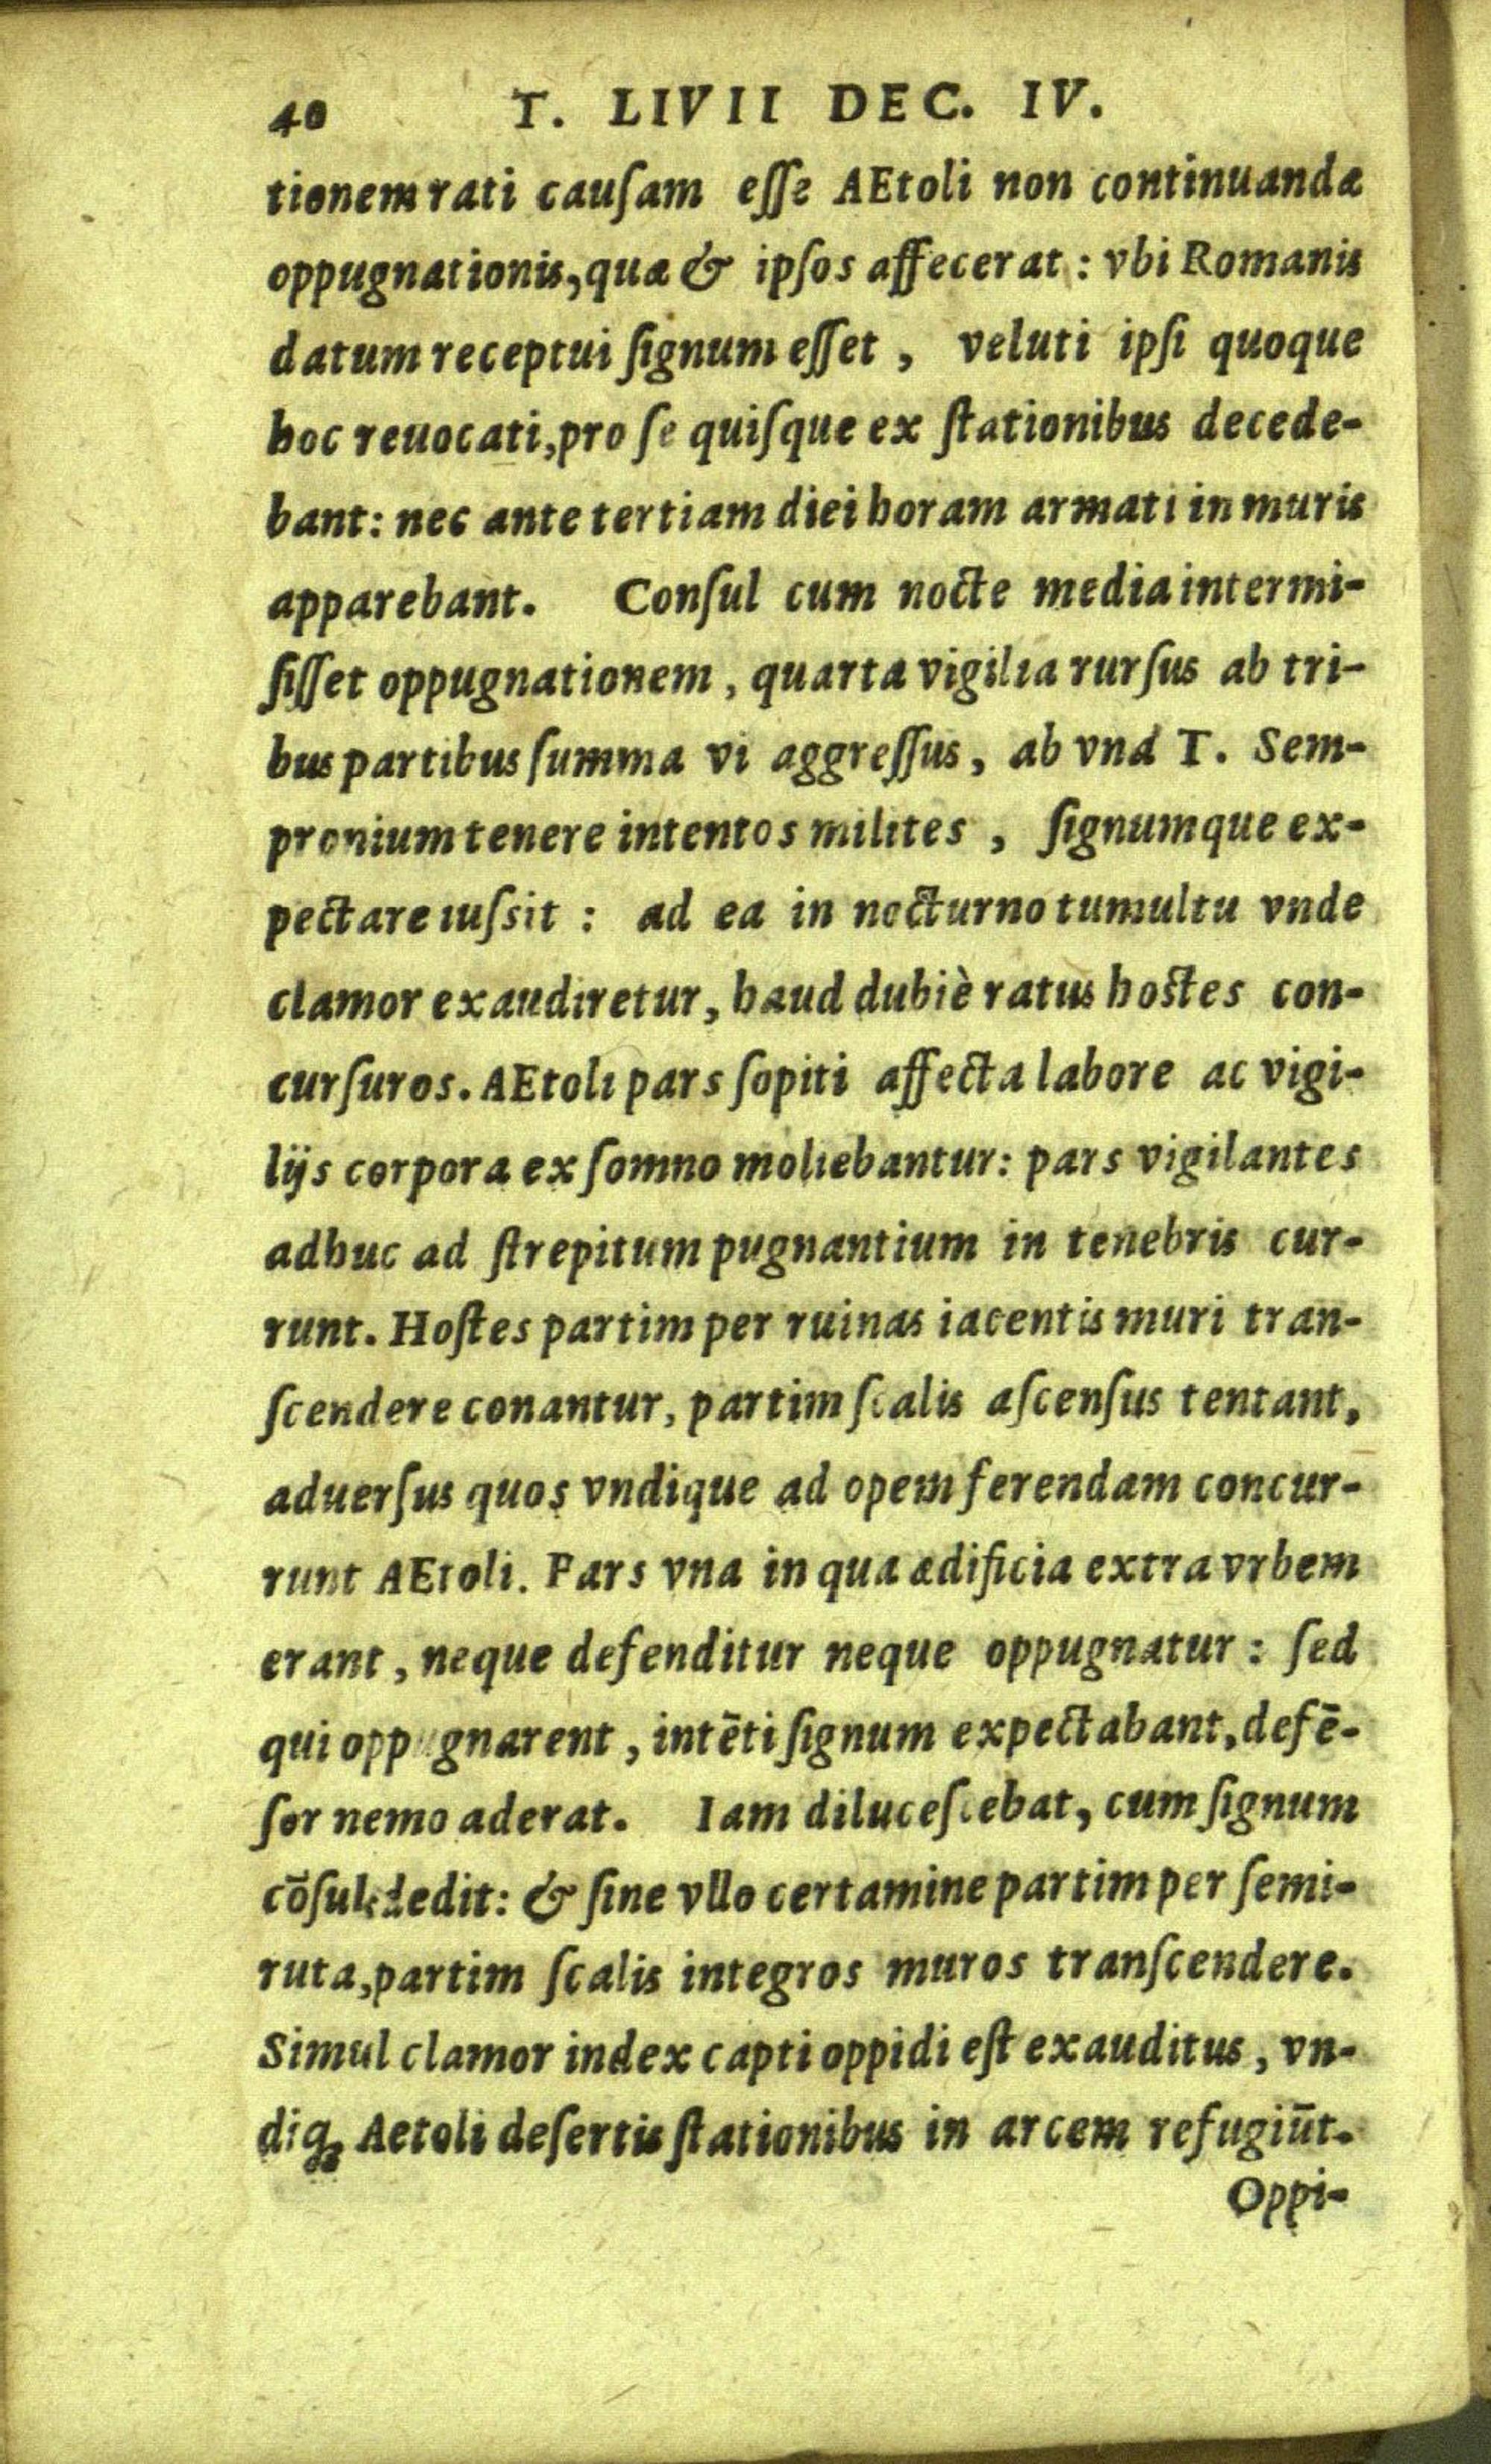 40 T. LIVII DEC. IV.
tionem rati cauſam eſſe AEtoli non continuandæ
oppugnationis, quæ & ipſos affecerat : vbi Romanis
datum receptui ſignum eſſet , veluti ipſi quoque
hoc reuocati, pro ſe quiſque ex ſtationibus decede-
bant: nec ante tertiam diei horam armati in muris
apparebant. Conſul cum nocte media intermi-
ſiſſet oppugnationem , quarta vigilia rurſus ab tri-
bus partibus ſumma vi aggreſſus , ab vná T. Sem-
pronium tenere intentos milites , ſignumque ex-
pectare iuſsit : ad ea in nocturno tumultu vnde
clamor exaudiretur, haud dubiè ratus hoſtes con-
curſuros. AEtoli pars ſopiti affecta labore ac vigi-
lijs corpora ex ſomno moliebantur: pars vigilantes
adhuc ad ſtrepitum pugnantium in tenebris cur-
runt. Hoſtes partim per ruinas iacentis muri tran-
ſcendere conantur, partim ſcalis aſcenſus tentant,
aduerſus quos vndique ad opem ferendam concur-
runt AEtoli. Pars vna in qua ædificia extra vrbem
erant , neque defenditur neque oppugnatur : ſed
qui oppugnarent , intēti ſignum expectabant, defē-
ſor nemo aderat. Iam diluceſcebat, cum ſignum
cōſul dedit: & ſine vllo certamine partim per ſemi-
ruta, partim ſcalis integros muros tranſcendere.
Simul clamor index capti oppidi eſt exauditus , vn-
diq; Aetoli deſertis ſtationibus in arcem refugiūt.
Oppi-